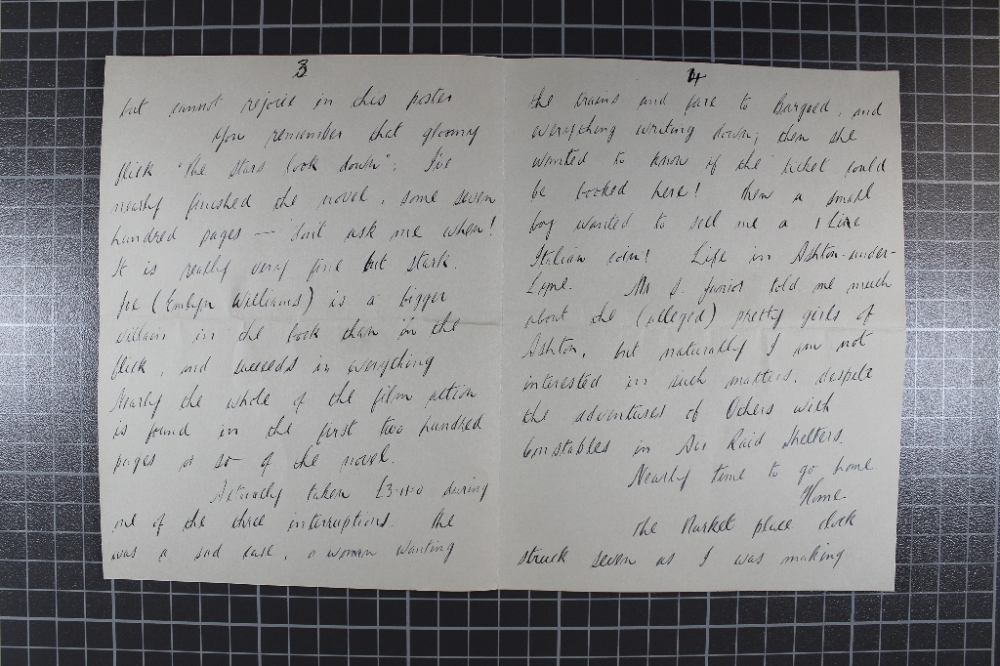 3
but cannot rejoice in this poster
You remember that gloomy
flick "The Stars look down"; I've
nearly finished the novel, some seven
hundred pages — don't ask me when!
It is really very fine but stark.
Joe (Emlyn Williams) is a bigger
villain in the book than in the
flick, and succeeds in everything
Nearly the whole of the film action
is found in the first two hundred
pages or so of the novel.
Actually taken £3-11-0 during
one of the three interruptions. One
was a sad case, a woman wanting
4
the trains and fare to Bargoed, and
everything writing down; then she
wanted to know if the ticket could
be booked here! Then a small
boy wanted to sell me a 1 Lire
Italian coin! Life in Ashton-under-
Lyne. Mr J. Junior told me much
about the (alleged) pretty girls of
Ashton, but naturally I am not
interested in such matters, despite
the adventures of Others with
Constables in Air Raid Shelters.
Nearly time to go home.
Home.
The Market place clock
struck seven as I was making